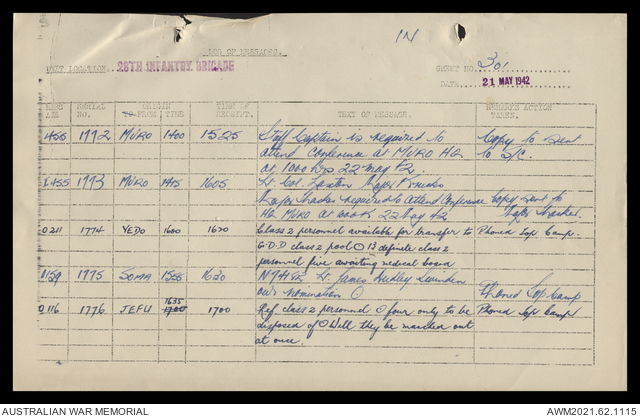 IN
LOG OF MESSAGES.
UNIT LOCATION. 28TH INFANTRY BRIGADE SHEET NO. 301
DATE 21 MAY 1942
SERIAL NO. ORIGIN TO FROM TIME TIME OF RECEIPT. TEXT OF MESSAGE. REMARKS ACTION TAKEN.
1455 1772 MURO 1400 1525 Staff Captain is required to Copy to sent
attend Conference at MURO HQ to S/C.
at 1000 hrs 22 May 42
1455 1773 MURO 1445 1605 Lt. Col. Major
Major required to attend Conference Copy sent to
HQ MURO at 22 May 42 Major
O211 1774 YEDO 1600 1620 Class 2 personnel available for transfer to Phoned Camp.
G.D.D class 2 pool O 13 definite class 2
personnel five awaiting medical board
1159 1775 SOMA 1555 1630 Lt James Hedley
our nomination O Phoned Camp
O116 1776 JEFU 1635 1700 1700 Ref class 2 personnel O four only to be Phoned Camp
disposed of O Will they be marched out
at once.
AUSTRALIAN WAR MEMORIAL AWM2021.62.1115